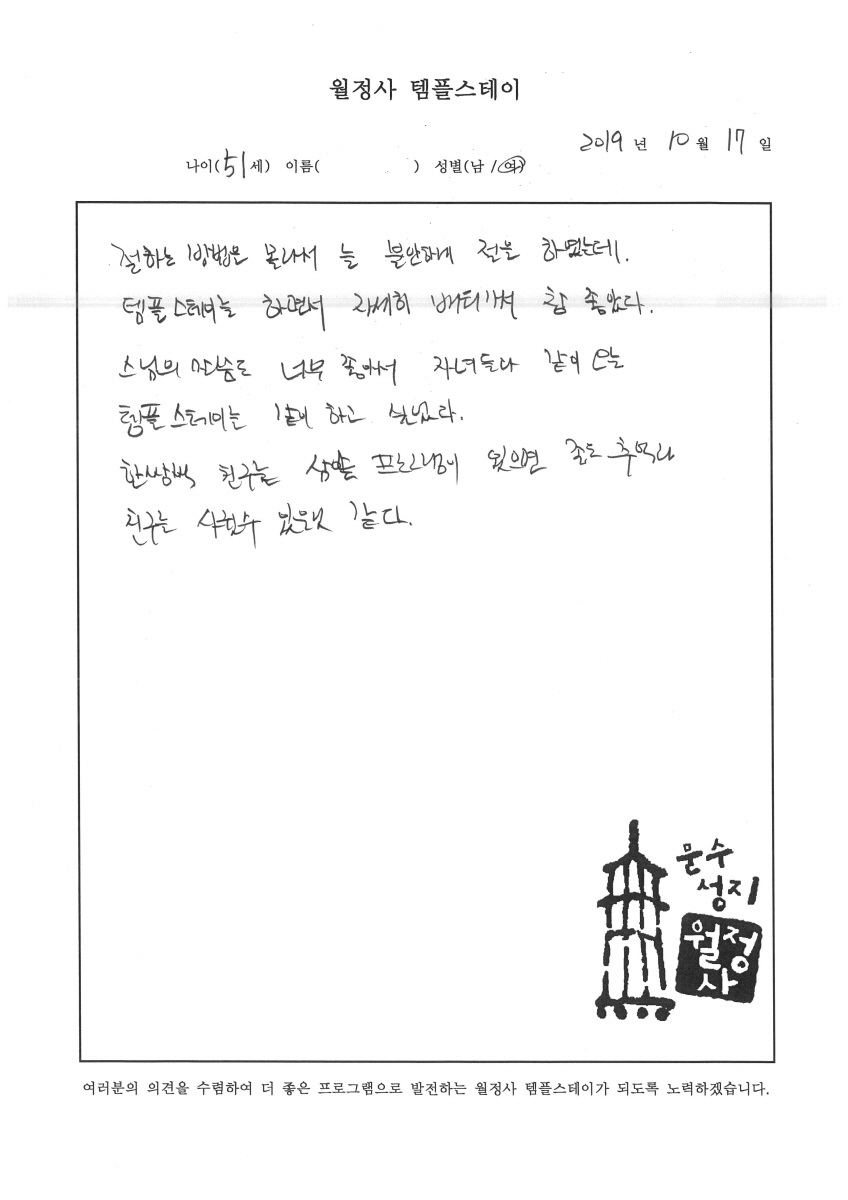 월정사 템플스테이
2019 년 10 월 17 일
나이(51세) 이름( ) 성별(남 / 여)
절하는 방법을 몰라서 늘 불안하게 절을 하였는데.
템플스테이를 하면서 자세히 배티가서 참 좋았다.
스님의 말씀도 너무 좋아서 자녀들과 같이 오늘
템플스테이를 같이 하고 싶었다.
한쌍씩 친구들 프로그램이 있으면 좀도 추억과
친구를 사귈수 있을것 같다.
문수
성지
월정
사
여러분의 의견을 수렴하여 더 좋은 프로그램으로 발전하는 월정사 템플스테이가 되도록 노력하겠습니다.